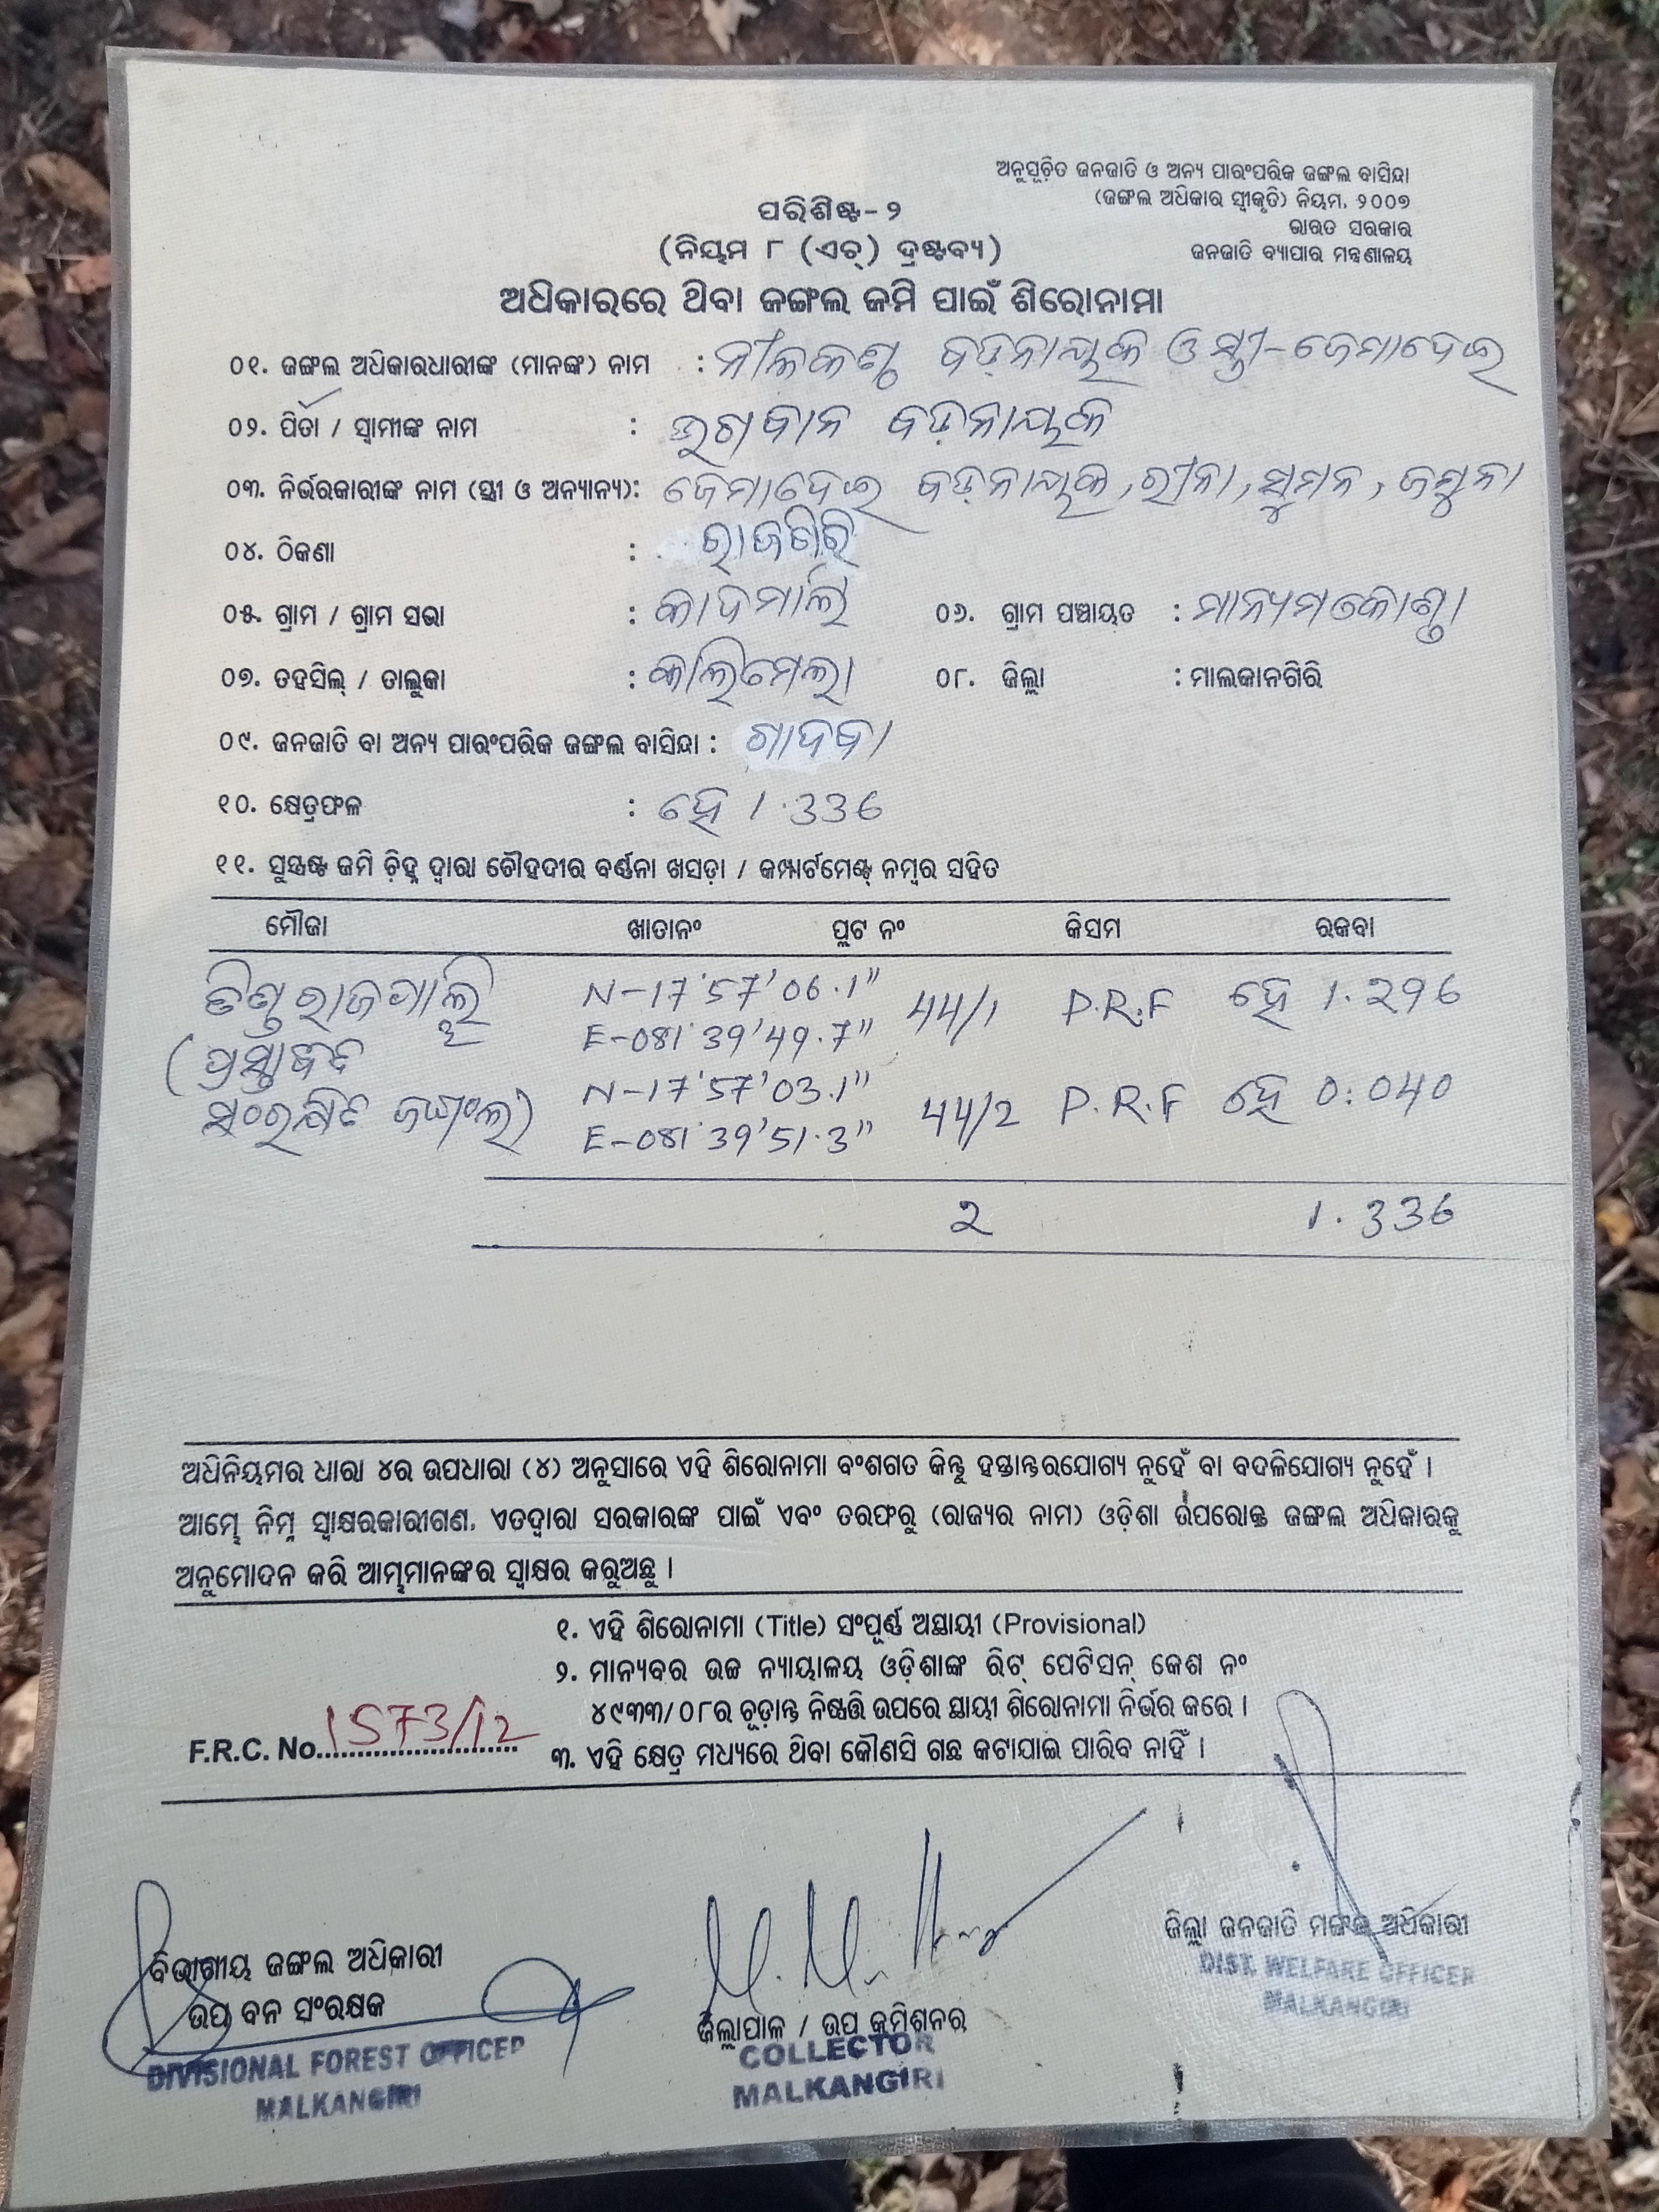 ଅନୁସୂଚିତ ଜନଜାତି ଓ ଅନ୍ୟ ପାରଂପରିକ ଜଙ୍ଗଲ ବାସିନ୍ଦା
(ଜଙ୍ଗଲ ଅଧିକାର ସ୍ୱୀକୃତି) ନିୟମ, ୨୦୦୭
ଭାରତ ସରକାର
ଜନଜାତି ବ୍ୟାପାର ମନ୍ତ୍ରଣାଳୟ
ପରିଶିଷ୍ଟ-୨
(ନିୟମ ୮ (ଏଚ୍) ଦ୍ରଷ୍ଟବ୍ୟ)
ଅଧିକାରରେ ଥିବା ଜଙ୍ଗଲ ଜମି ପାଇଁ ଶିରୋନାମା
୦୧. ଜଙ୍ଗଲ ଅଧିକାରଧାରୀଙ୍କ (ମାନଙ୍କ) ନାମ : ନୀଳକଣ୍ଠ ବଡ଼ନାୟକ ଓ ସ୍ତ୍ରୀ-ଜେମାଦେଈ
୦୨. ପିତା / ସ୍ୱାମୀଙ୍କ ନାମ : ଭଗବାନ ବଡ଼ନାୟକ
୦୩. ନିର୍ଭରକାରୀଙ୍କ ନାମ (ସ୍ତ୍ରୀ ଓ ଅନ୍ୟାନ୍ୟ): ଜେମାଦେଈ ବଡ଼ନାୟକ, ରୀନା, ସୁମନ, ଜମୁନା
୦୪. ଠିକଣା : ରାଜଗିରି
୦୫. ଗ୍ରାମ / ଗ୍ରାମ ସଭା : କାଦମାଲି ୦୬. ଗ୍ରାମ ପଞ୍ଚାୟତ : ମାନ୍ୟମକୋଣ୍ଡା
୦୭. ତହସିଲ୍ / ତାଲୁକା : କାଲିମେଲା ୦୮. ଜିଲ୍ଲା : ମାଲକାନଗିରି
୦୯. ଜନଜାତି ବା ଅନ୍ୟ ପାରଂପରିକ ଜଙ୍ଗଲ ବାସିନ୍ଦା : ଗାଦବା
୧୦. କ୍ଷେତ୍ରଫଳ : ହେ 1.336
୧୧. ସୁସ୍ପଷ୍ଟ ଜମି ଚିହ୍ନ ଦ୍ୱାରା ଚୌହଦୀର ବର୍ଣ୍ଣନା ଖସଡ଼ା / କମ୍ପାର୍ଟମେଣ୍ଟ୍ ନମ୍ବର ସହିତ
ମୌଜା ଖାତାନଂ ପ୍ଲଟ ନଂ କିସମ ରକବା
N-17°57'06.1" 44/1 P.R.F ହେ 1.296
E-081°39'49.7"
(ପ୍ରସ୍ତାବିତ N-17°57'03.1" 44/2 P.R.F ହେ 0.040
ସଂରକ୍ଷିତ ଜଙ୍ଗଲ) E-081°39'51.3"
2 1.336
ଅଧିନିୟମର ଧାରା ୪ର ଉପଧାରା (୪) ଅନୁସାରେ ଏହି ଶିରୋନାମା ବଂଶଗତ କିନ୍ତୁ ହସ୍ତାନ୍ତରଯୋଗ୍ୟ ନୁହେଁ ବା ବଦଳିଯୋଗ୍ୟ ନୁହେଁ ।
ଆମ୍ଭେ ନିମ୍ନ ସ୍ୱାକ୍ଷରକାରୀଗଣ, ଏତଦ୍ୱାରା ସରକାରଙ୍କ ପାଇଁ ଏବଂ ତରଫରୁ (ରାଜ୍ୟର ନାମ) ଓଡ଼ିଶା ଉପରୋକ୍ତ ଜଙ୍ଗଲ ଅଧିକାରକୁ
ଅନୁମୋଦନ କରି ଆମ୍ଭମାନଙ୍କର ସ୍ୱାକ୍ଷର କରୁଅଛୁ ।
୧. ଏହି ଶିରୋନାମା (Title) ସଂପୂର୍ଣ୍ଣ ଅସ୍ଥାୟୀ (Provisional)
୨. ମାନ୍ୟବର ଉଚ୍ଚ ନ୍ୟାୟାଳୟ ଓଡ଼ିଶାଙ୍କ ରିଟ୍ ପେଟିସନ୍ କେଶ ନଂ
୪୯୩୩/୦୮ର ଚୂଡ଼ାନ୍ତ ନିଷ୍ପତ୍ତି ଉପରେ ସ୍ଥାୟୀ ଶିରୋନାମା ନିର୍ଭର କରେ ।
F.R.C. No. 1573/12 ୩. ଏହି କ୍ଷେତ୍ର ମଧ୍ୟରେ ଥିବା କୌଣସି ଗଛ କଟାଯାଇ ପାରିବ ନାହିଁ ।
ବିଭାଗୀୟ ଜଙ୍ଗଲ ଅଧିକାରୀ
ଉପ ବନ ସଂରକ୍ଷକ
DIVISIONAL FOREST OFFICER
MALKANGIRI
ଜିଲ୍ଲାପାଳ / ଉପ କମିଶନର
COLLECTOR
MALKANGIRI
ଜିଲ୍ଲା ଜନଜାତି ମଙ୍ଗଳ ଅଧିକାରୀ
DIST. WELFARE OFFICER
MALKANGIRI